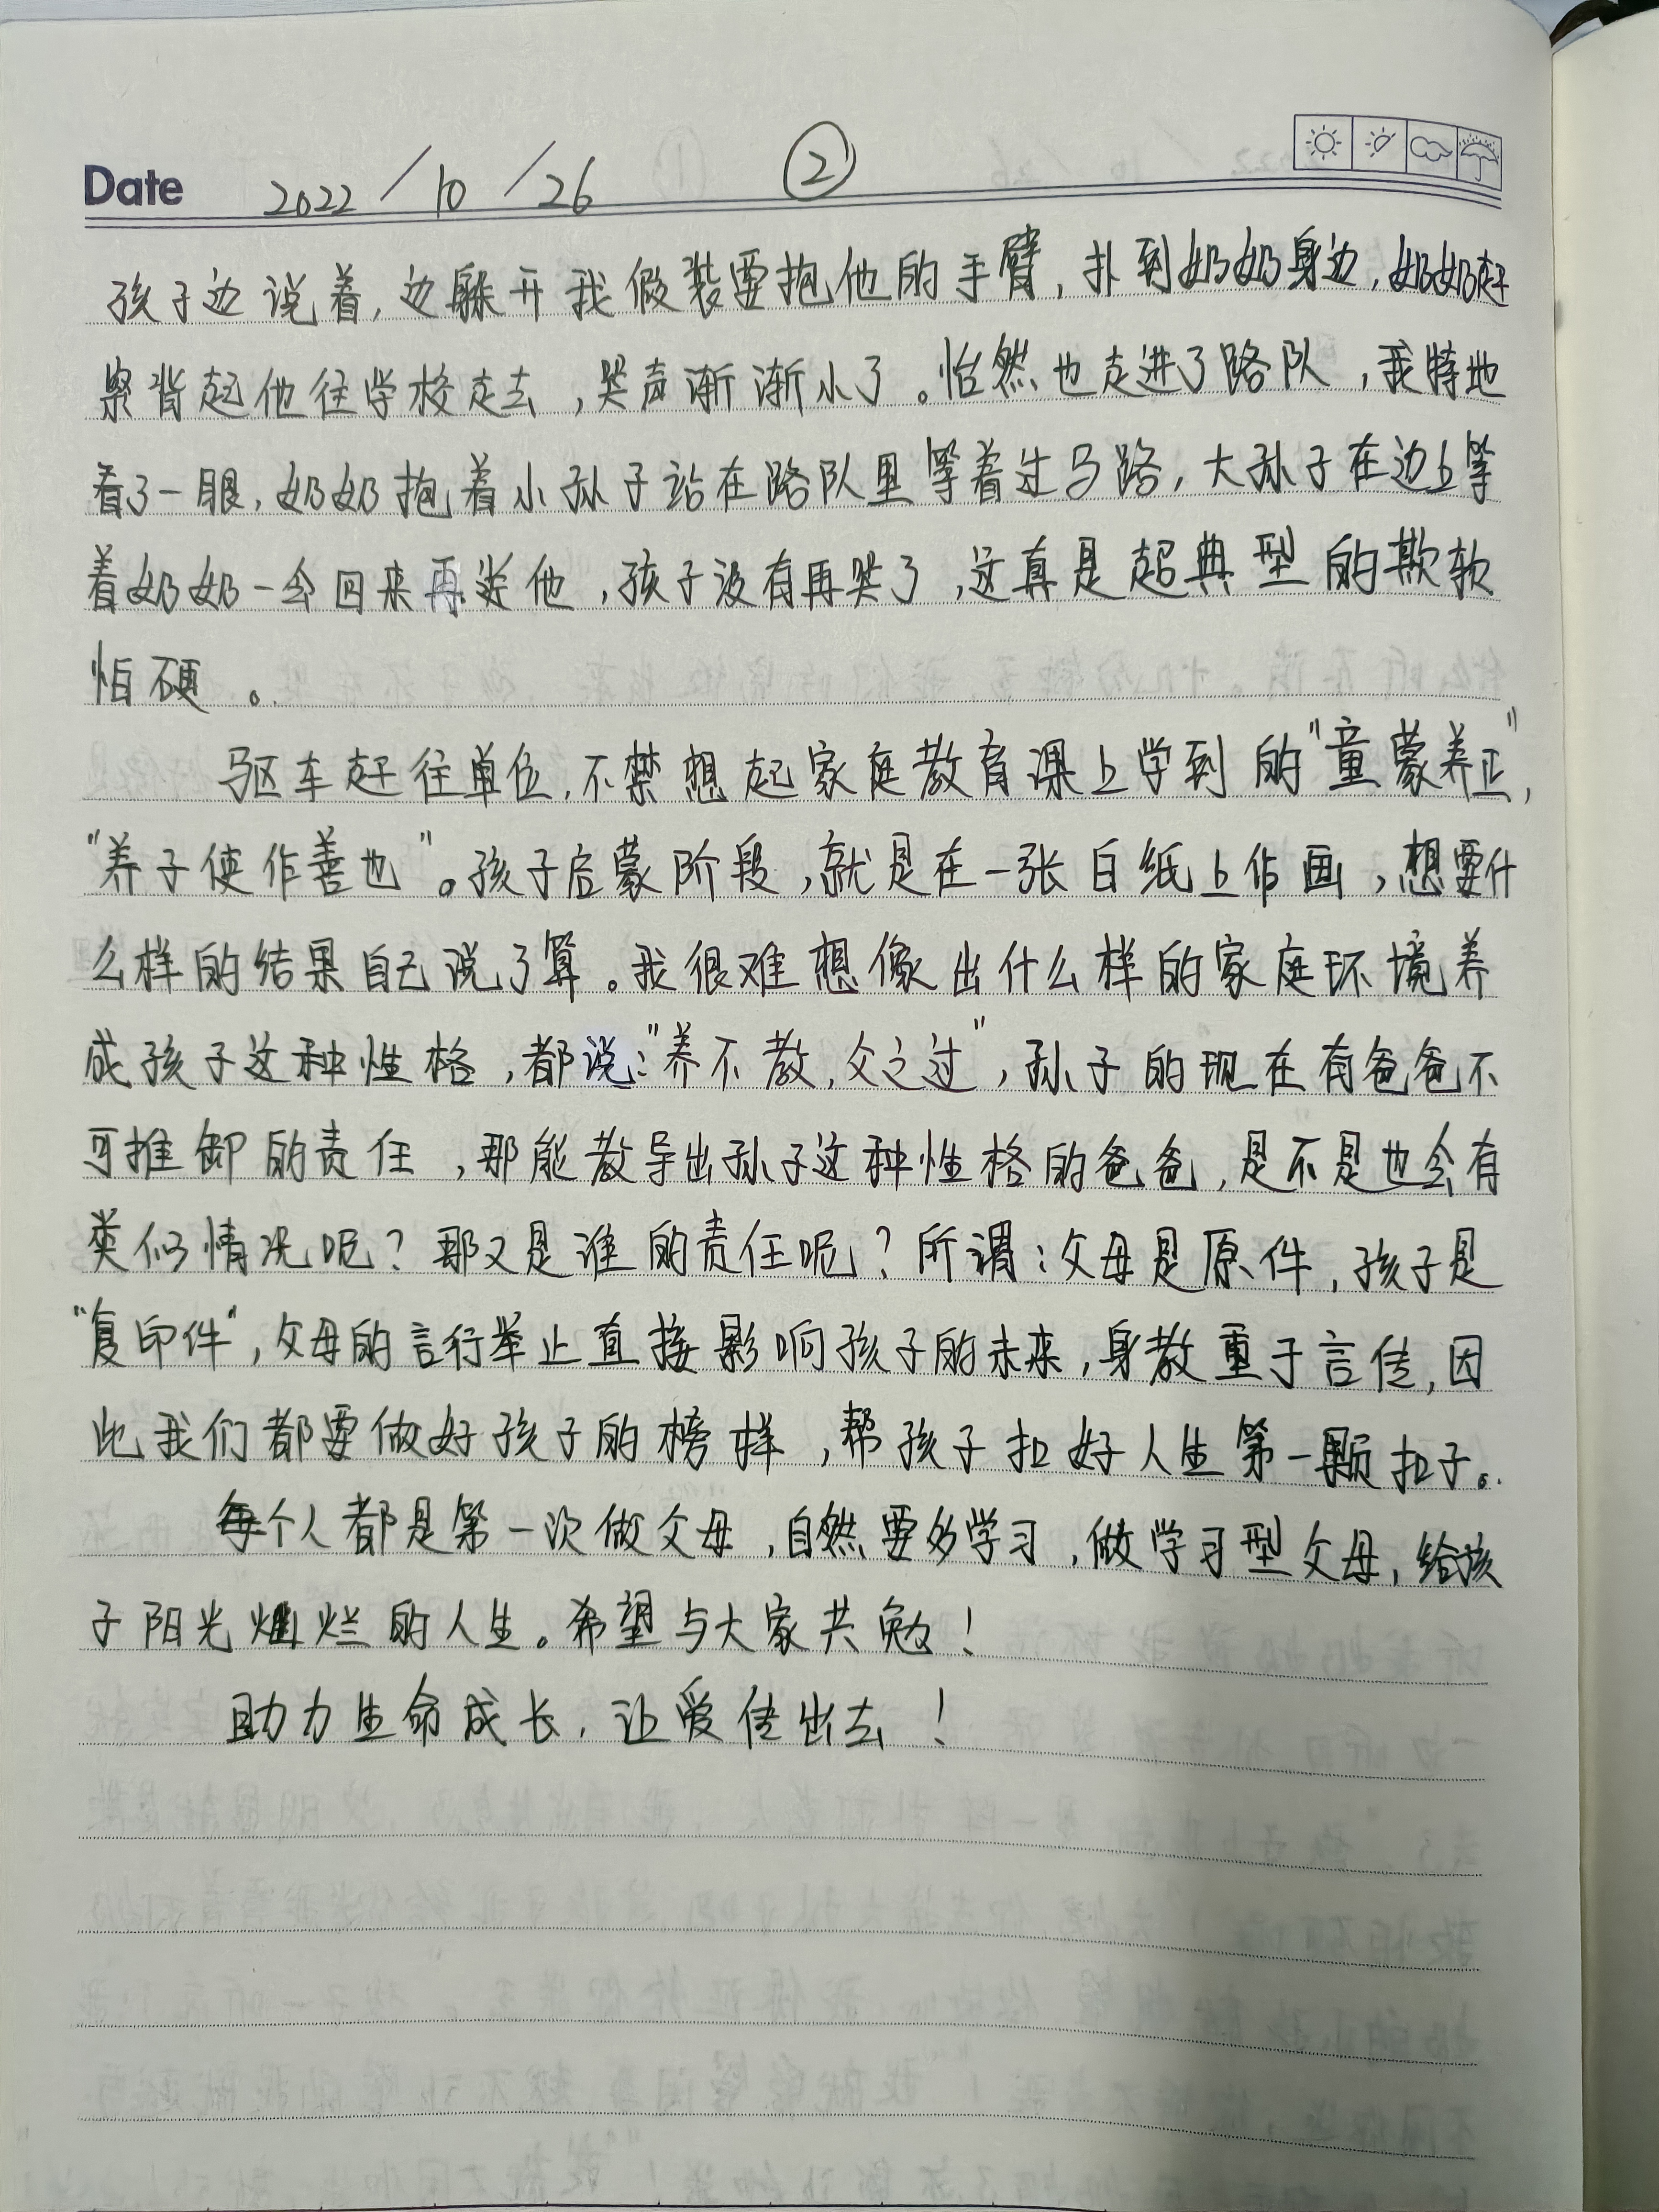 Date 2022/10/26 ②
孩子边说着,边躲开我假装要抱他的手臂,扑到奶奶身边,奶奶赶
紧背起他往学校走去,哭声渐渐小了。怡然也走进了路队,我特地
看了一眼,奶奶抱着小孙子站在路队里等着过马路,大孙子在边上等
着奶奶一会回来再送他,孩子没有再哭了,这真是超典型的欺软
怕硬。
驱车赶往单位,不禁想起家庭教育课上学到的"童蒙养正",
"养子使作善也"。孩子启蒙阶段,就是在一张白纸上作画,想要什
么样的结果自己说了算。我很难想像出什么样的家庭环境养
成孩子这种性格,都说:"养不教,父之过",孙子的现在有爸爸不
可推卸的责任,那能教导出孙子这种性格的爸爸,是不是也会有
类似情况呢?那又是谁的责任呢?所谓:父母是原件,孩子是
"复印件",父母的言行举止直接影响孩子的未来,身教重于言传,因
此我们都要做好孩子的榜样,帮孩子扣好人生第一颗扣子。
每个人都是第一次做父母,自然要多学习,做学习型父母,给孩
子阳光灿烂的人生。希望与大家共勉!
助力生命成长,让爱传出去!